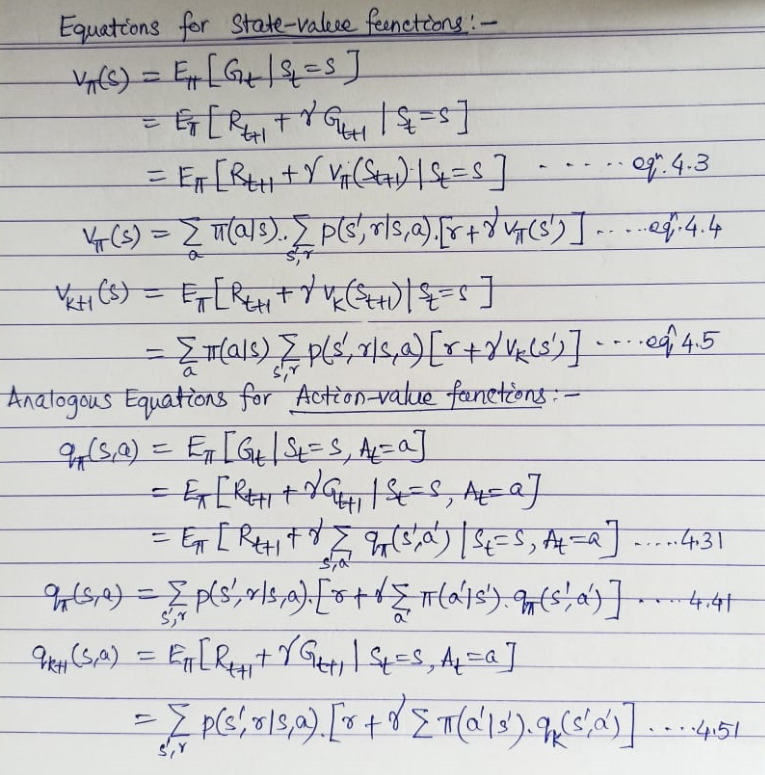 Equations for State-value functions:-
V_π(s) = E_π[G_t | S_t=s]
= E_π[R_{t+1} + γ G_{t+1} | S_t=s]
= E_π[R_{t+1} + γ V_π(S_{t+1}) | S_t=s] ..... eqⁿ. 4.3
V_π(s) = Σ_a π(a|s). Σ_{s',r} p(s',r|s,a).[r + γ V_π(s')] .....eqⁿ.4.4
V_{k+1}(s) = E_π[R_{t+1} + γ V_k(S_{t+1}) | S_t=s]
= Σ_a π(a|s) Σ_{s',r} p(s',r|s,a)[r + γ V_k(s')] ....eqⁿ 4.5
Analogous Equations for Action-value functions:-
q_π(s,a) = E_π[G_t | S_t=s, A_t=a]
= E_π[R_{t+1} + γ G_{t+1} | S_t=s, A_t=a]
= E_π[R_{t+1} + γ Σ_{s',a'} q_π(s',a') | S_t=s, A_t=a] .....4.31
q_π(s,a) = Σ_{s',r} p(s',r|s,a).[r + γ Σ_{a'} π(a'|s').q_π(s',a')] ....4.41
q_{k+1}(s,a) = E_π[R_{t+1} + γ G_{t+1} | S_t=s, A_t=a]
= Σ_{s',r} p(s',r|s,a).[r + γ Σ π(a'|s').q_k(s',a')] ....4.51